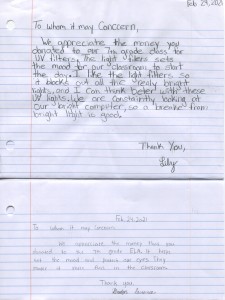 Feb 24, 2021
To whom it may Concern,
We appreciate the money you
donated to our 7th grade class for
UV filters, the light filters sets
the mood for our classroom to start
the day. I like the light filters so
it blocks out all the really bright
lights, and I can think beter with these
UV lights. We are constantly looking at
our bright computer, so a break from
bright light is good.
Thank You,
Lilly
Feb 24 2021
To whom it may concern
We appreciate the money that you
donated to our 7th grade ELA. It helps
set the mood and our eyes. They
make it calm in the classroom.
Thank you,